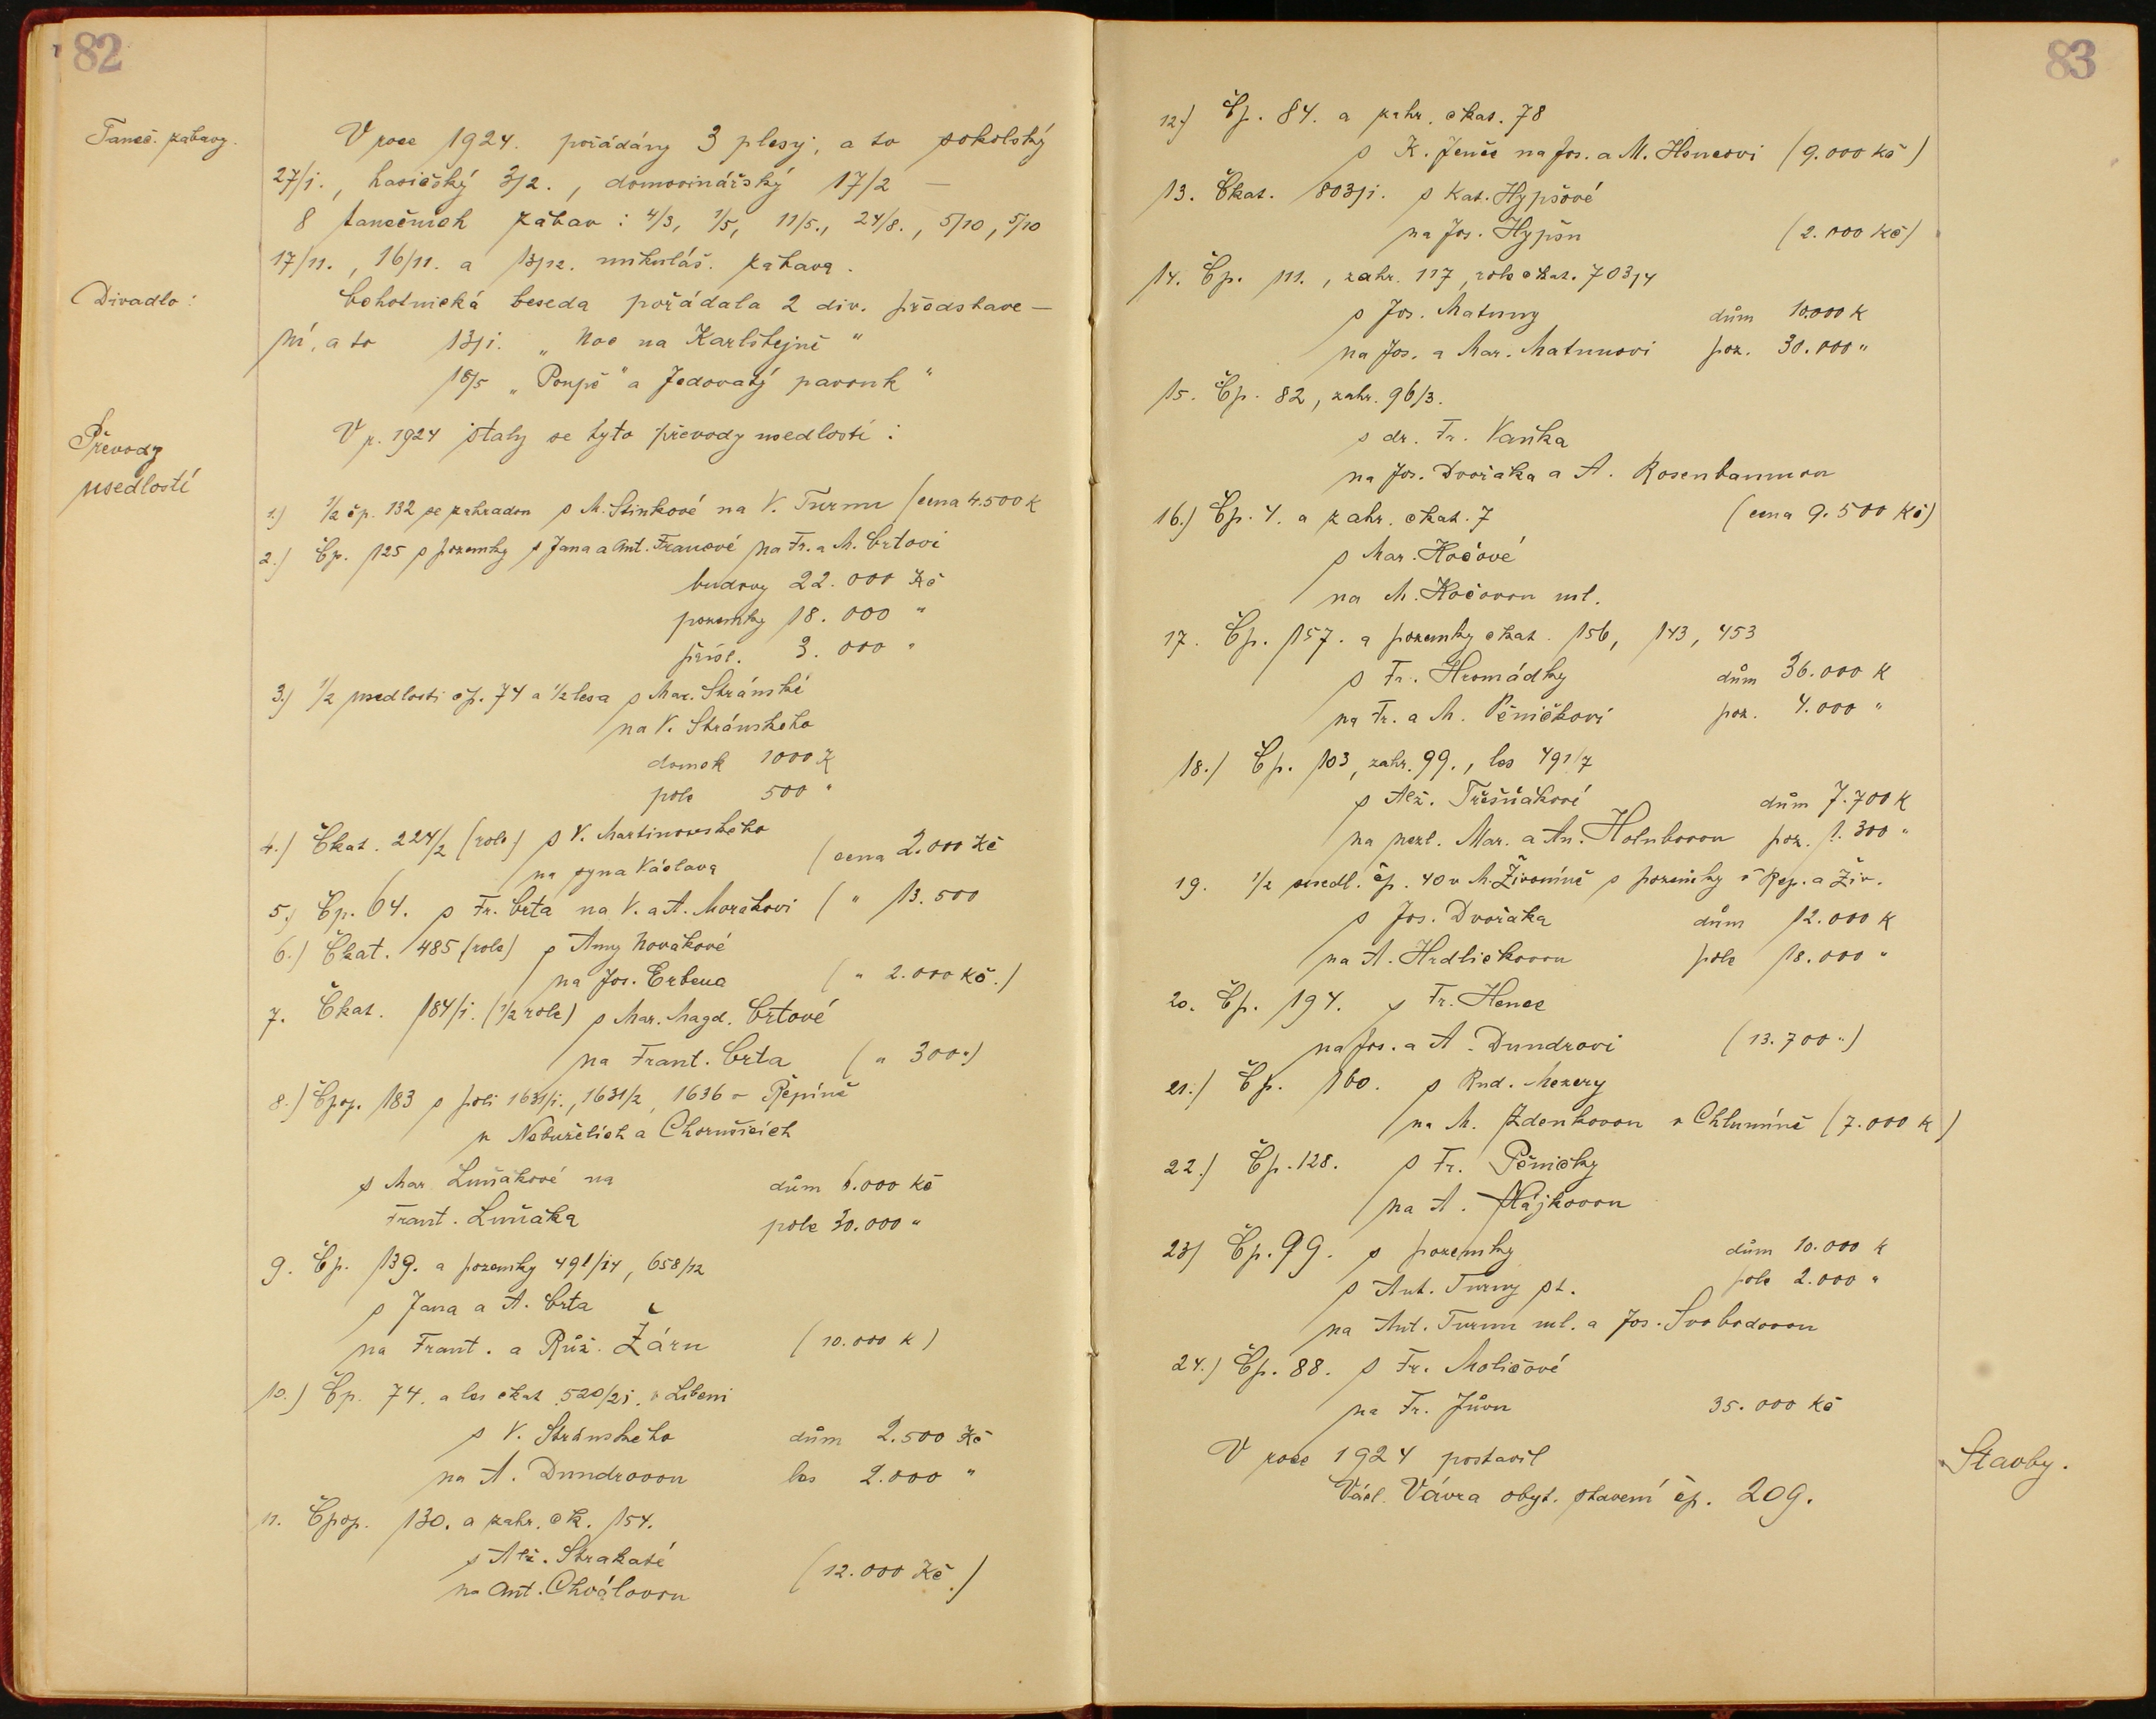 82
Taneč. zábavy.
V roce 1924. pořádány 3 plesy, a to sokolský
27/1., hasičský 3/2., domovinářský 17/2 —
8 tanečních zábav: 4/3, 1/5, 11/5., 24/8., 5/10, 5/10
17/11., 16/11. a 13/12. mikuláš. zábava.
Divadlo:
Ochotnická beseda pořádala 2 div. představe-
ní, a to 13/1. „Noc na Karlštejně"
18/5 „Poupě" a Jedovatý pavouk"
Převody
usedlostí
V r. 1924 staly se tyto převody usedlostí:
1.) 1/2 čp. 132 se zahradou s M. Šinkové na V. Turmu (cena 4.500 K
2.) Čp. 125 s pozemky s Jana a Ant. Francové na Fr. a M. Crtovi
budovy 22.000 Kč
pozemky 18.000 "
přísl. 3.000 "
3.) 1/2 usedlosti čp. 74 a 1/2 lesa s Mar. Stránské
na V. Stránského
domek 1000 K
pole 500 "
4.) Čkat. 224/2 (role) s V. Martinovského
na syna Václava (cena 2.000 Kč
5.) Čp. 64. s Fr. Crta na V. a A. Morákovi ( " 13.500
6.) Čkat. 485 (role) s Anny Novákové
na Jos. Erbena ( " 2.000 Kč.)
7. Čkat. 184/1. (1/2 role) s Mar. Magd. Crtové
na Frant. Crta ( " 300 ")
8.) Čpop. 183 s poli 1631/1., 1631/2, 1636 v Řepíně
v Nebuželích a Chorušicích
s Mar. Luňákové na dům 6.000 Kč
Frant. Luňáka pole 30.000 "
9. Čp. 139. a pozemky 491/14, 658/12
s Jana a A. Crta
na Frant. a Růž. Žáru (10.000 K)
10.) Čp. 74. a les čkat. 520/21. v Libeni
s V. Stránského dům 2.500 Kč
na A. Dundrovou les 2.000 "
11. Čpop. 130. a zahr. čk. 154.
s Alž. Strakaté
na Ant. Chválovou (12.000 Kč.)
83
12.) Čp. 84. a zahr. čkat. 78
s K. Jenče na Jos. a M. Hencovi (9.000 Kč)
13. Čkat. 803/1. s Kat. Hypšové
na Jos. Hypšu (2.000 Kč)
14. Čp. 111., zahr. 117, role čkat. 703/4
s Jos. Matuny dům 10.000 K
na Jos. a Mar. Matunovi poz. 30.000 "
15. Čp. 82, zahr. 96/3.
s dr. Fr. Vaňka
na Jos. Dvořáka a A. Rosenbaumou
16.) Čp. 4. a zahr. čkat. 7 (cena 9.500 Kč)
s Mar. Kočové
na M. Kočovou ml.
17. Čp. 157. a pozemky čkat. 156, 143, 453
s Fr. Hromádky dům 36.000 K
na Fr. a M. Pěničkovi poz. 4.000 "
18.) Čp. 103, zahr. 99., les 491/7
s Alž. Třešňákové dům 7.700 K
na nezl. Mar. a An. Holubovou poz. 1.300 "
19. 1/2 usedl. čp. 40 v M. Živoníně s pozemky v Řep. a Živ.
s Jos. Dvořáka dům 12.000 K
na A. Hrdličkovou pole 18.000 "
20. Čp. 194. s Fr. Hence
na Jos. a A. Dundrovi (13.700 ")
21.) Čp. 160. s Rud. Mezery
na M. Zdenkovou v Chlumíně (7.000 K)
22.) Čp. 128. s Fr. Pěničky
na A. Hájkovou
23) Čp. 99. s pozemky dům 10.000 K
s Ant. Turmy st. pole 2.000 "
na Ant. Turmu ml. a Jos. Svobodovou
24.) Čp. 88. s Fr. Moličové
na Fr. Jůvu 35.000 Kč
V roce 1924 postavil
Václ. Vávra obyt. stavení čp. 209.
Stavby.